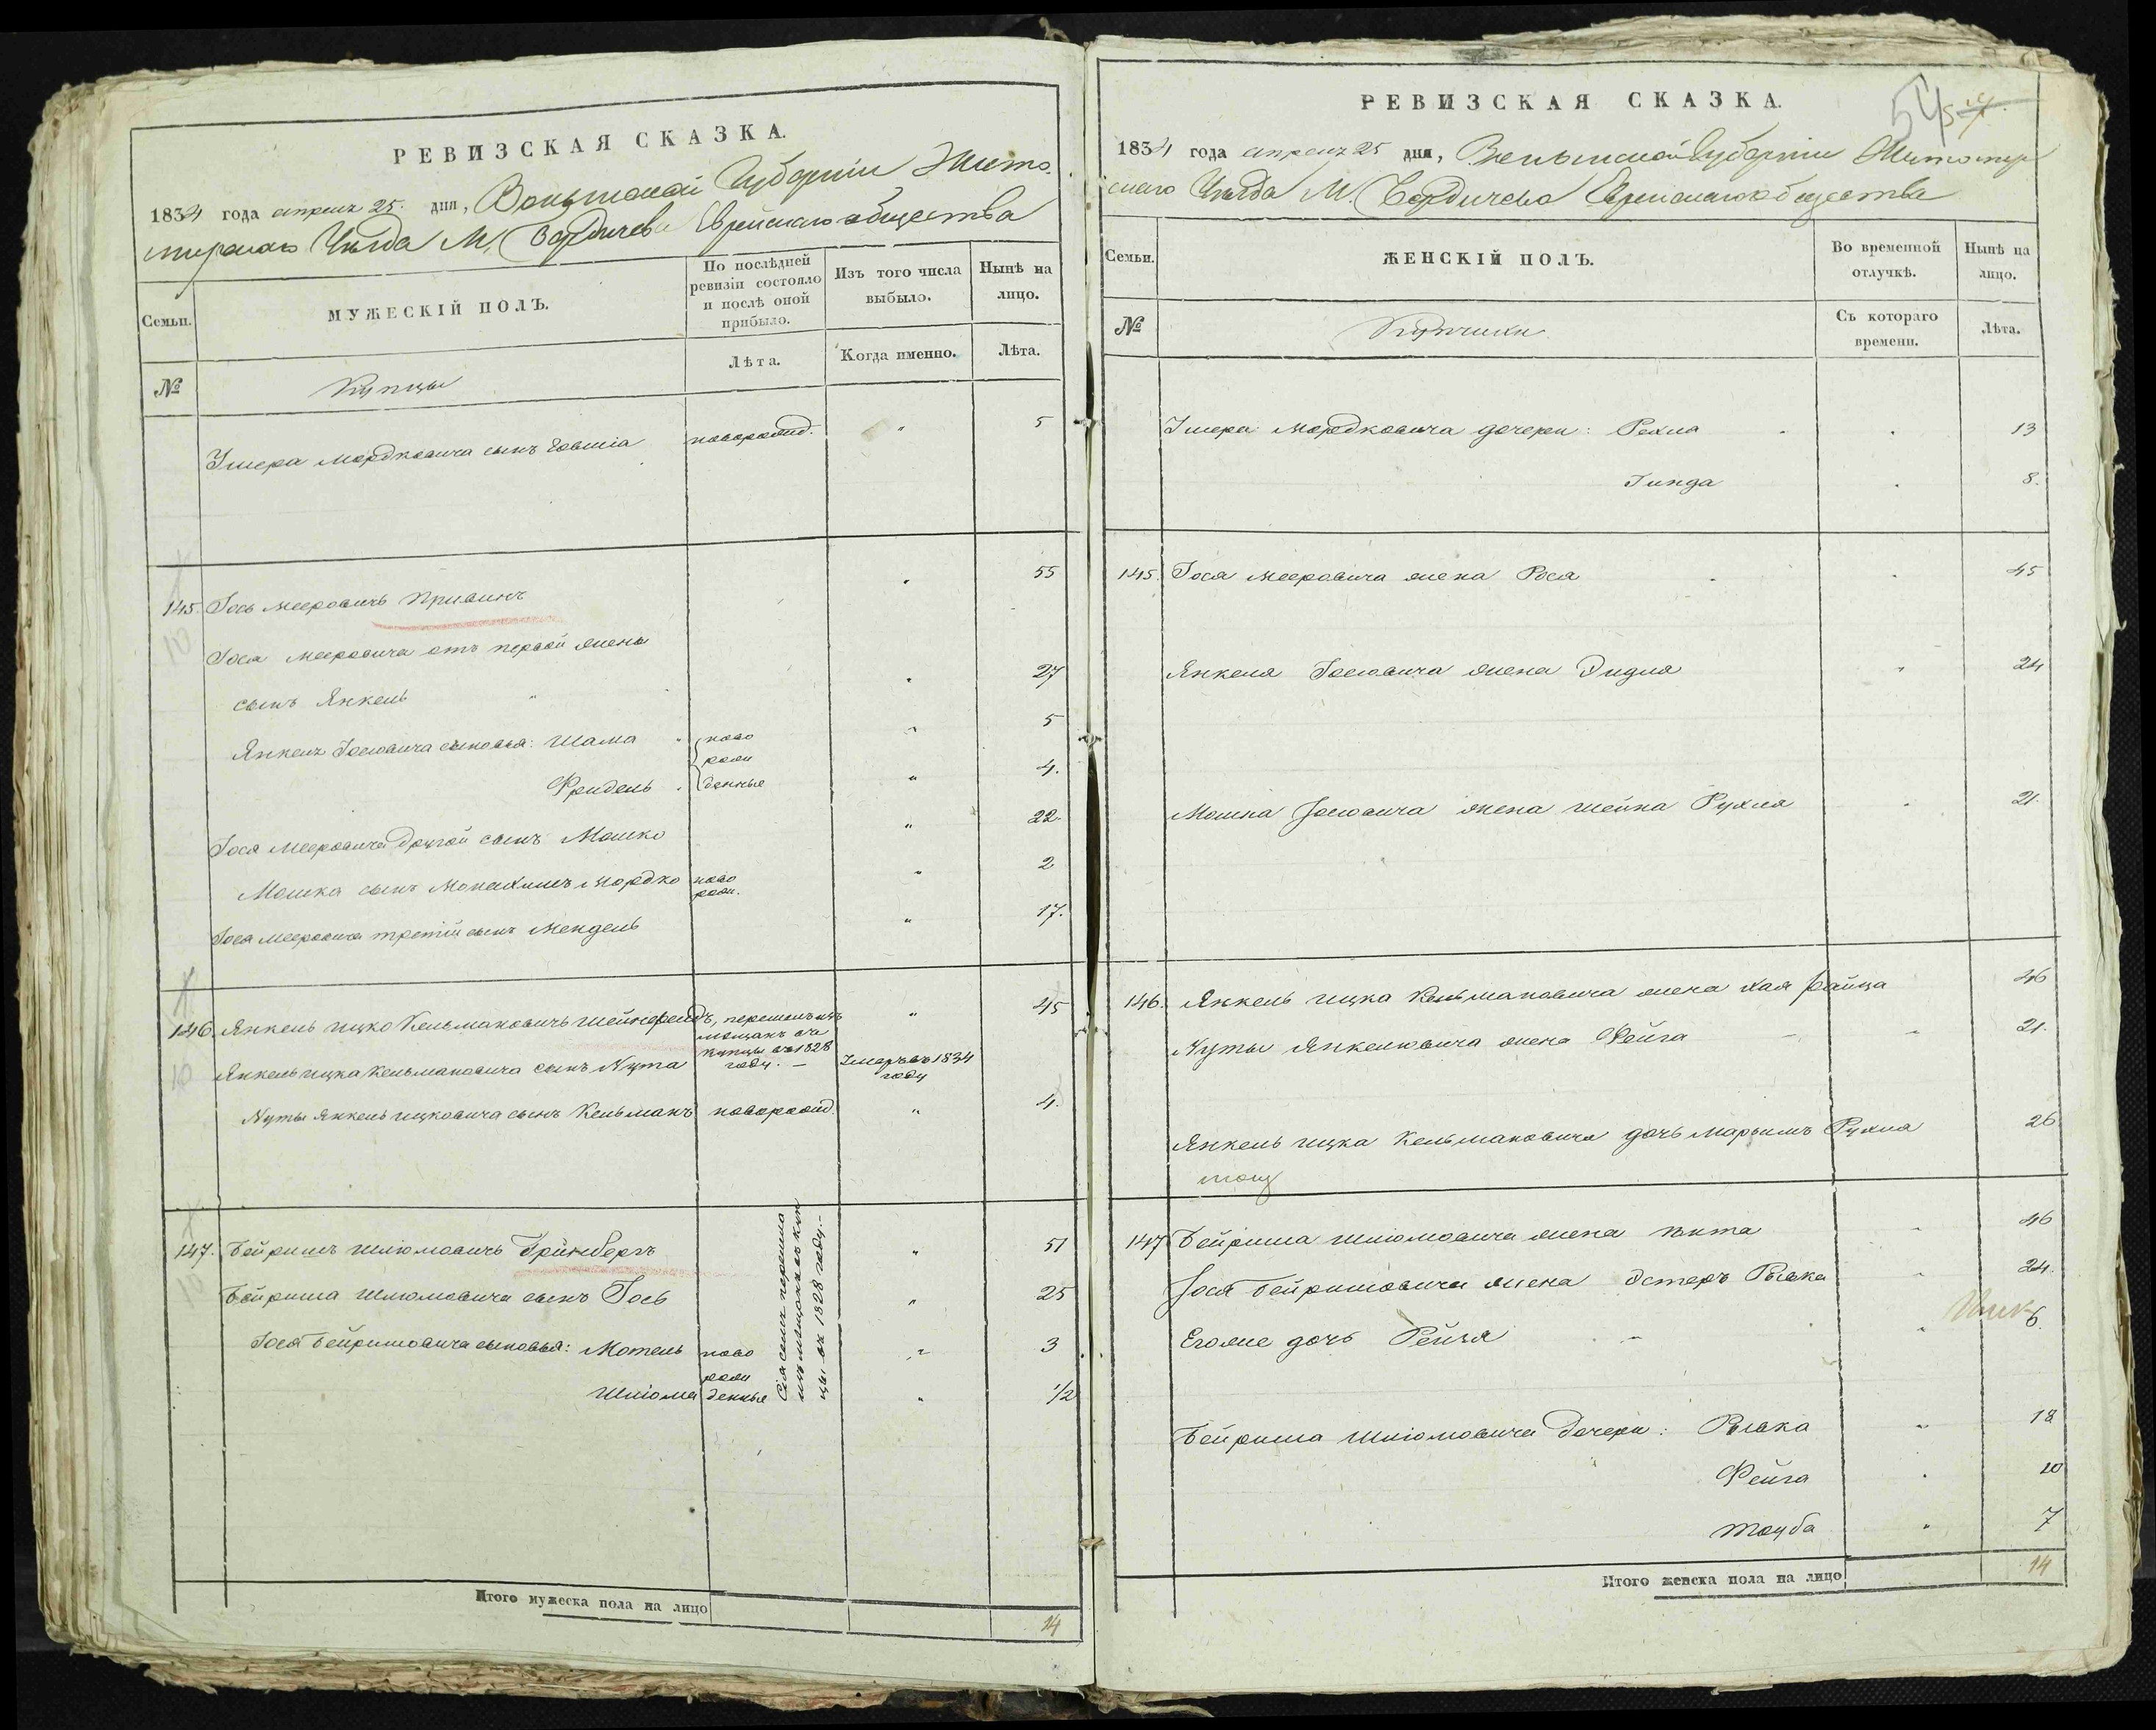 РЕВИЗСКАЯ СКАЗКА.
1834 года апреля 25. дня, Волынской Губерніи Жито
мирскаго Уѣзда М. Бердичева Еврейскаго общества
Семьи.
МУЖЕСКІЙ ПОЛЪ.
По послѣдней ревизіи состояло и послѣ оной прибыло.
Изъ того числа выбыло.
Нынѣ на лицо.
№
Купцы
Лѣта.
Когда именно.
Лѣта.
Іmера Мордковича сынъ Іовшіа новорожд. " 5
145. Іось Мееровичъ Кривинъ " 55
Іося Мееровича отъ первой жены
сынъ Янкель " " 27
Янкеля Іосіовича сыновья: Шама ново " 5
рож
Фридель денные " 4.
Іося Мееровича другой сынъ Мошко " 22.
Мошка сынъ Монахимъ Мордко ново рож. " 2
Іося Мееровича третій сынъ Мендель " 17.
146. Янкель Ицко Кельмановичъ Шейнфельдъ, перешелъ изъ " 45
мещанъ въ
купцы въ 1828
году. —
Янкель Ицка Кельмановича сынъ Нута Умеръ въ 1834
году
Нуты Янкель Ицковича сынъ Кельманъ новорожд. " 4.
147. Бейришъ Шліомовичъ Грінбергъ " 51
Бейриша Шліомовича сынъ Іось " 25
Іося Бейришовича сыновья: Мотель ново " 3
рож
Шліома денные " 1/2
Сія семья перешла
изъ мещанъ въ куп
цы въ 1828 году. –
Итого мужеска пола на лицо 14
РЕВИЗСКАЯ СКАЗКА.
54
1834 года апреля 25 дня, Волынской Губерніи Житомир
скаго Уѣзда М. Бердичева Еврейскаго общества
Семьи.
ЖЕНСКІЙ ПОЛЪ.
Во временной отлучкѣ.
Нынѣ на лицо.
№
Съ котораго времени.
Лѣта.
Мордковича дочери: Рохля 13
Гинда 8.
145. Іося Мееровича жена Рося 45
Янкеля Іосіовича жена 24
Мошка Іосіовича жена Шейна Рухля 21.
146. Янкель Ицка Кельмановича жена Хая Райца 46
Нуты Янкеліовича жена Фейга 21.
Янкель Ицка Кельмановича дочь Марьямъ Рухля 26
147 Бейриша Шліомовича жена 46
Іося Бейришовича жена Эстеръ Рывка 24.
Егоже дочь Рейзя 6.
Бейриша Шліомовича дочери: Рывка 18
Фейга 10
Тауба 7
Итого женска пола на лицо 14